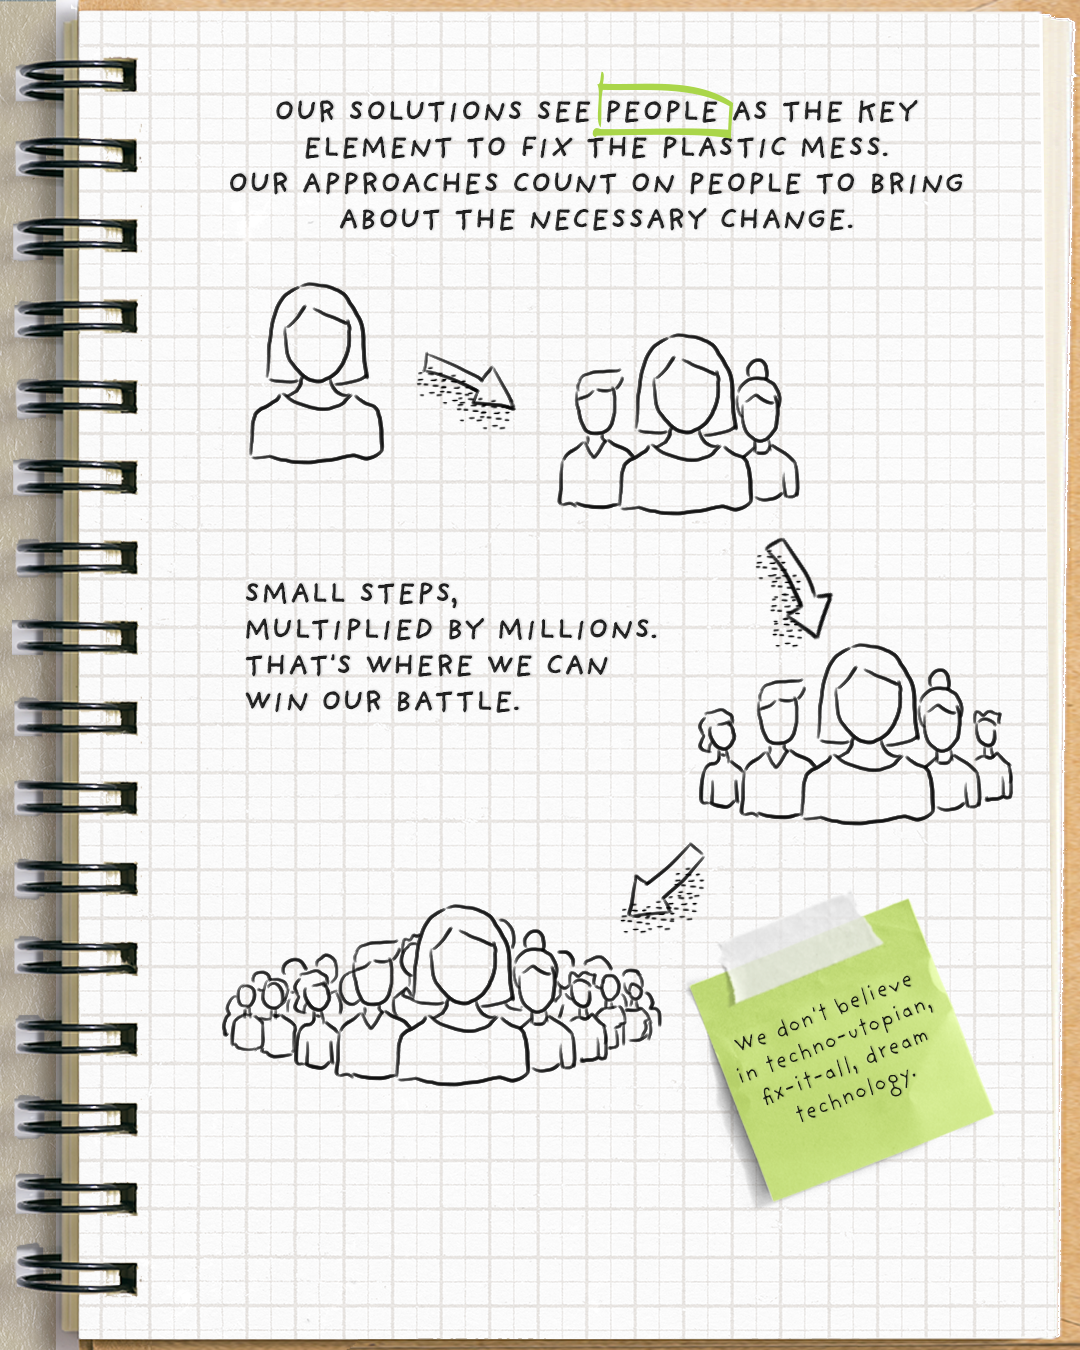 OUR SOLUTIONS SEE PEOPLE AS THE KEY
ELEMENT TO FIX THE PLASTIC MESS.
OUR APPROACHES COUNT ON PEOPLE TO BRING
ABOUT THE NECESSARY CHANGE.
SMALL STEPS,
MULTIPLIED BY MILLIONS.
THAT'S WHERE WE CAN
WIN OUR BATTLE.
We don't believe
in techno-utopian,
fix-it-all, dream
technology.